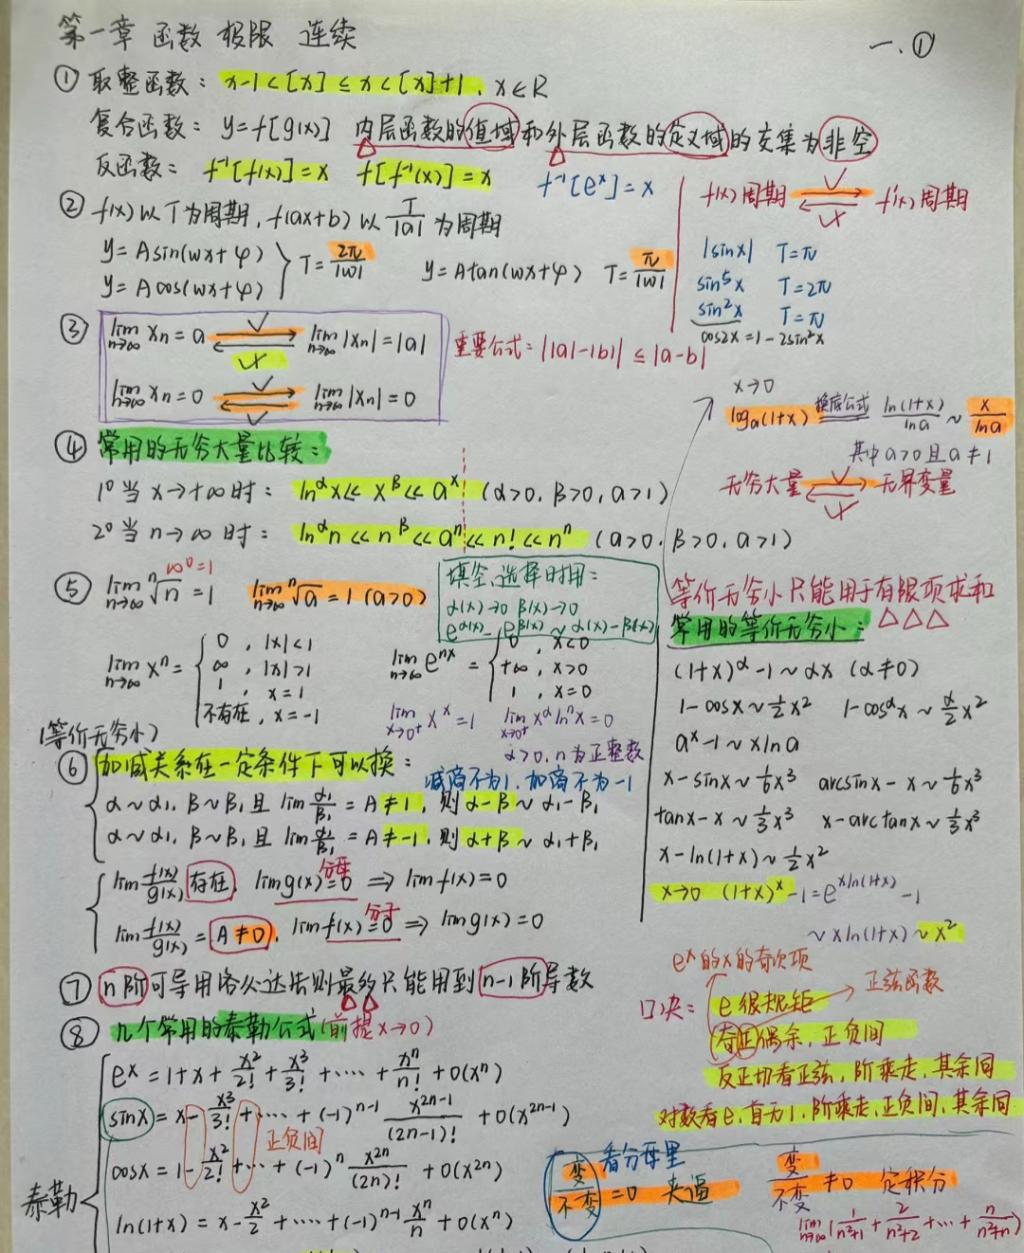 第一章 函数 极限 连续
一.①
① 取整函数: x-1<[x]≤x<[x]+1, x∈R
复合函数: y=f[g(x)] 内层函数的值域和外层函数的定义域的交集为非空
反函数: f⁻¹[f(x)]=x f[f⁻¹(x)]=x f⁻¹[eˣ]=x
f(x)周期 ⇄ f'(x)周期
√
×
② f(x)以T为周期, f(ax+b)以 T/|a| 为周期
y=Asin(wx+φ)
y=Acos(wx+φ)
} T=2π/|w|
y=Atan(wx+φ) T=π/|w|
|sinx| T=π
sin⁵x T=2π
sin²x T=π
cos2x=1-2sin²x
③ lim n→∞ xn=a ⇄ lim n→∞ |xn|=|a|
√
×
lim n→∞ xn=0 ⇄ lim n→∞ |xn|=0
√
√
重要公式: ||a|-|b||≤|a-b|
x→0
logₐ(1+x) 换底公式 ln(1+x)/lna ~ x/lna
其中a>0且a≠1
无穷大量 ⇄ 无界变量
√
×
④ 常用的无穷大量比较:
1° 当x→+∞时: ln^αx≪x^β≪aˣ (α>0, β>0, a>1)
2° 当n→∞时: ln^αn≪n^β≪aⁿ≪n!≪nⁿ (a>0, β>0, a>1)
⑤ lim n→∞ ⁿ√n=1 ∞⁰=1 lim n→∞ ⁿ√a=1 (a>0)
填空、选择时用:
α(x)→0 β(x)→0
e^α(x)-e^β(x)~α(x)-β(x)
lim n→∞ xⁿ= { 0, |x|<1
∞, |x|>1
1, x=1
不存在, x=-1
lim n→∞ e^nx= { 0, x<0
+∞, x>0
1, x=0
lim x→0⁺ xˣ=1 lim x→0⁺ x^α lnⁿx=0
α>0, n为正整数
等价无穷小只能用于有限项求和
△△△
常用的等价无穷小:
(1+x)^α-1~αx (α≠0)
1-cosx~½x² 1-cos^αx~α/2 x²
aˣ-1~xlna
x-sinx~1/6x³ arcsinx-x~1/6x³
tanx-x~1/3x³ x-arctanx~1/3x³
x-ln(1+x)~½x²
x→0 (1+x)ˣ-1=e^xln(1+x)-1
~xln(1+x)~x²
(等价无穷小)
⑥ 加减关系在一定条件下可以换:
减商不为1, 加商不为-1
α~α₁, β~β₁, 且 lim α₁/β₁=A≠1, 则α-β~α₁-β₁
α~α₁, β~β₁, 且 lim α₁/β₁=A≠-1, 则α+β~α₁+β₁
lim f(x)/g(x) 存在, lim g(x)=0 ⇒ lim f(x)=0
分母
lim f(x)/g(x)=A≠0, lim f(x)=0 ⇒ lim g(x)=0
分子
⑦ n阶可导用洛必达法则最多只能用到n-1阶导数
⑧ 几个常用的泰勒公式(前提x→0)
泰勒
eˣ=1+x+x²/2!+x³/3!+⋯+xⁿ/n!+o(xⁿ)
sinx=x-x³/3!+⋯+(-1)ⁿ⁻¹ x²ⁿ⁻¹/(2n-1)!+o(x²ⁿ⁻¹)
正负间
cosx=1-x²/2!+⋯+(-1)ⁿ x²ⁿ/(2n)!+o(x²ⁿ)
ln(1+x)=x-x²/2+⋯+(-1)ⁿ⁻¹ xⁿ/n+o(xⁿ)
eˣ的x的奇次项
正弦函数
口诀: e很规矩
奇正偶余, 正负间
反正切看正弦, 阶乘走, 其余同
对数看e, 首为1, 阶乘走, 正负间, 其余同
看分母里
变/不变=0 夹逼
变/不变≠0 定积分
lim n→∞ (1/n²+1+2/n²+2+⋯+n/n²+n)